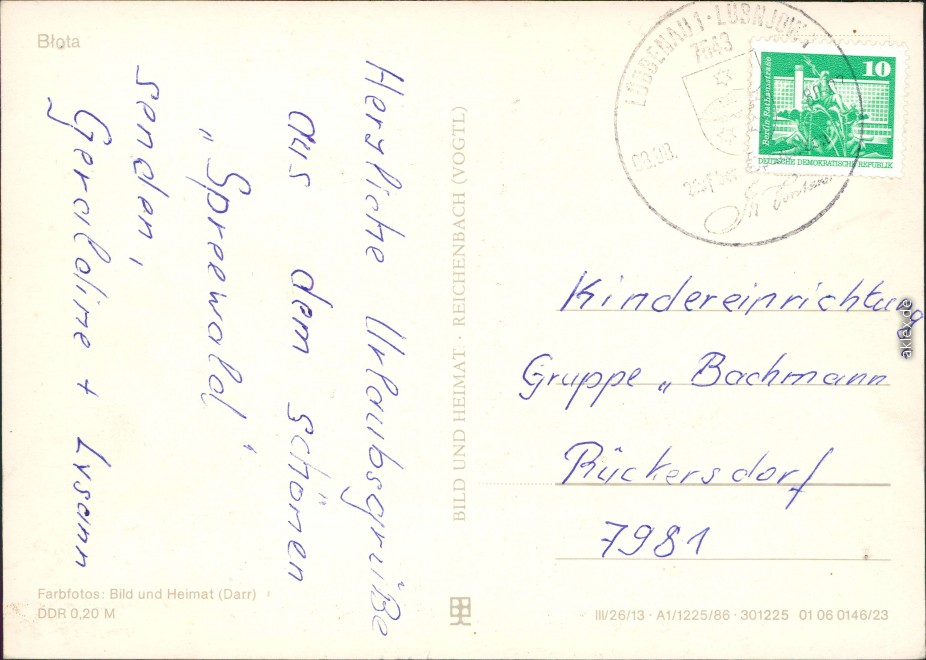 Błota
Herzliche Urlaubsgrüße
aus dem schönen
„Spreewald"
senden,
Geraldine + Lysann
BILD UND HEIMAT · REICHENBACH (VOGTL)
LÜBBENAU 1 · LUBNJOW 1
7543
10
Berlin, Rathausstraße
DEUTSCHE DEMOKRATISCHE REPUBLIK
Kindereinrichtung
Gruppe „Bachmann
Rückersdorf
7981
Farbfotos: Bild und Heimat (Darr)
DDR 0,20 M
III/26/13 · A1/1225/86 · 301225 01 06 0146/23
aklex.de